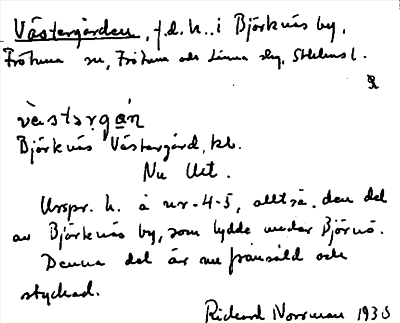 Västergården, f.d. h. i Björknäs by,
Frötuna sn, Frötuna och Länna skg, Sthlms l.
västərgán
Björknäs Västergård, kb.
Nu Utt.
Urspr. h. å nr 4-5, alltså den del
av Björknäs by, som lydde under Björnö.
Denna del är nu frånsåld och
styckad.
Rickard Norrman 1930